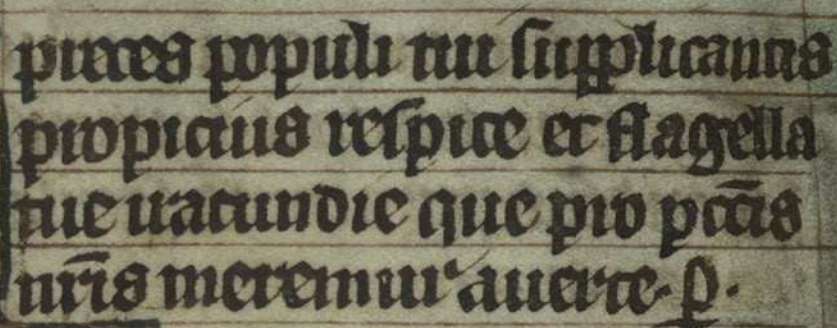 preces populi tui supplicantis
propicius respice et flagella
tue iracundie que pro pcc̄is
nr̄is meremur auerte. p̱.